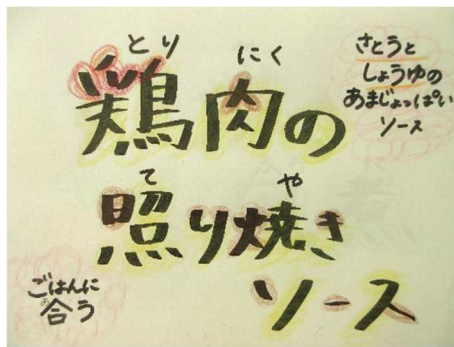 とり にく
鶏肉の
て や
照り焼き
ソース
さとうと
しょうゆの
あまじょっぱい
ソース
ごはんに
合う